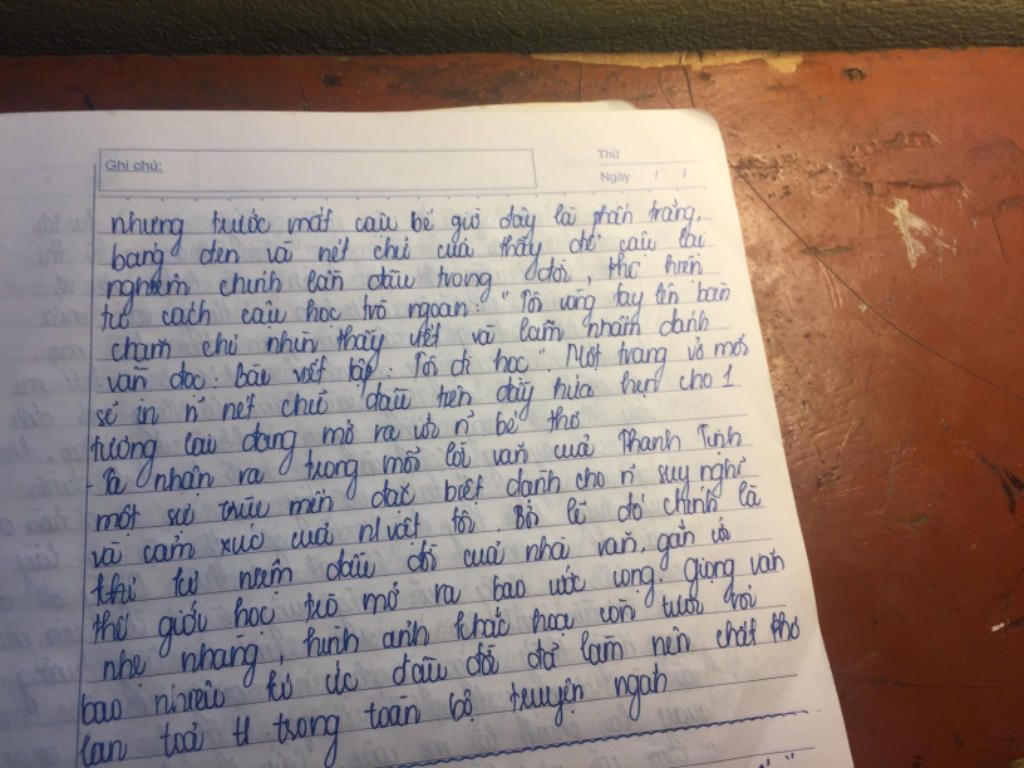 Ghi chú:
Thứ
Ngày / /
nhưng trước mắt cậu bé giờ đây là phấn trắng,
bảng đen và nét chữ của thầy để cậu lại
nghiệm chỉnh lần đầu trong đời, thể hiện
tư cách cậu học trò ngoan: "Tôi vòng tay lên bàn
chăm chỉ nhìn thầy viết và lẩm nhẩm đánh
vần đọc: Bài viết tập: Tôi đi học". Một trang vở mới
sẽ in n~ nét chữ đầu tiên đầy hứa hẹn cho 1
tương lai đang mở ra với n~ bé thơ
- Ta nhận ra trong mỗi lời văn của Thanh Tịnh
một sự trìu mến đặc biệt dành cho n~ suy nghĩ
và cảm xúc của n/vật tôi. Bởi lẽ đó chính là
kỉ niệm đầu đời của nhà văn, gắn với
thế giới học trò mở ra bao ước vọng. Giọng văn
nhẹ nhàng, hình ảnh khắc họa còn tươi rói
bao nhiêu kí ức đầu đời đã làm nên chất thơ
lan toả trong toàn bộ truyện ngắn